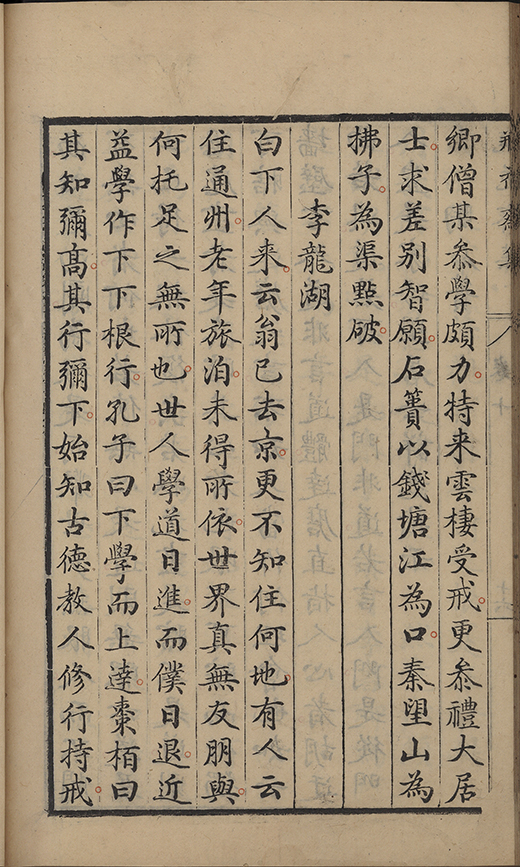 卿僧某叅學頗力特来雲棲受戒更叅禮大居
士求差別智願石簣以錢塘江為口秦望山為
拂子為渠點破
李龍湖
白下人来云翁已去京更不知住何地有人云
住通州老年旅泊未得所依世界真無友朋與
何托足之無所也世人學道日進而僕日退近
益學作下下根行孔子曰下學而上達棗栢曰
其知彌高其行彌下始知古德教人修行持戒